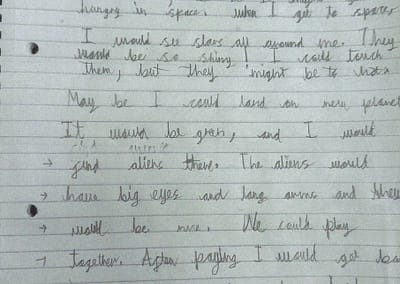 hungry in space. when I get to space
I would see stars all around me. They
would be so shiny! I could touch
them, but they might be to hot.
May be I could land on new planet
It would be green, and I would
→ find aliens there. The aliens would
→ have big eyes and long arms and they
→ would be nice. We could play
→ together. After I would get